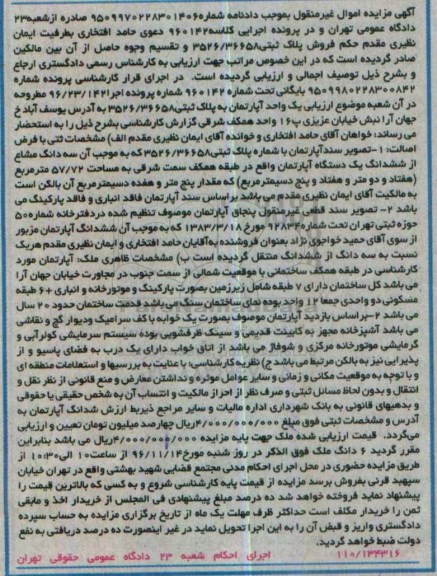 آگهی مزایده اموال غیرمنقول بموجب دادنامه شماره۹۵۰۹۹۷۰۲۲۸۳۰۱۴۰۶ صادره ازشعبه۲۳
دادگاه عمومی تهران و در پرونده اجرایی کلاسه۹۶۰۱۴۲ دعوی حامد افتخاری بطرفیت ایمان
نظیری مقدم حکم فروش پلاک ثبتی۳۵۲۶/۳۶۶۵۸ و تقسیم وجوه حاصل از آن بین مالکین
صادر گردیده است که در این خصوص مراتب جهت ارزیابی به کارشناس رسمی دادگستری ارجاع
و بشرح ذیل توصیف اجمالی و ارزیابی گردیده است. در اجرای قرار کارشناسی پرونده شماره
۹۵۰۹۹۸۰۲۲۸۳۰۰۸۴۲ بایگانی تحت شماره ۹۶۰۱۴۲ شماره پرونده اجرا۹۶/۲۳/۱۴۲ مطروحه
در آن شعبه موضوع ارزیابی یک واحد آپارتمان به پلاک ثبتی۳۵۲۶/۳۶۶۵۸ به آدرس یوسف آباد خ
جهان آرا نبش خیابان عزیزی پ۱۶ واحد همکف شرقی گزارش کارشناسی بشرح ذیل را به استحضار
می رساند: خواهان آقای حامد افتخاری و خوانده آقای ایمان نظیری مقدم الف) مشخصات ثبتی با فرض
اصالت: ۱-تصویر سندآپارتمان با شماره پلاک ثبتی۳۵۲۶/۳۶۶۵۸ که به موجب آن سه دانگ مشاع
از ششدانگ یک دستگاه آپارتمان واقع در طبقه همکف سمت شرقی به مساحت ۵۷/۷۲ مترمربع
(هفتاد و دو متر و هفتاد و پنج دسیمترمربع) که مقدار پنج متر و هفده دسیمترمربع آن بالکن است
به مالکیت آقای ایمان نظیری مقدم می باشد براساس سند آپارتمان فاقد انباری و فاقد پارکینگ می
باشد ۲- تصویر سند قطعی غیرمنقول بنچاق آپارتمان موصوف تنظیم شده دردفترخانه شماره۵۰
حوزه ثبتی تهران تحت شماره۹۲۸۳۴ مورخ ۱۳۸۳/۳/۱۸ که به موجب آن ششدانگ آپارتمان مزبور
از سوی آقای حمید خواجوی نژاد بعنوان فروشنده به آقایان حامد افتخاری و ایمان نظیری مقدم هریک
نسبت به سه دانگ از ششدانگ منتقل گردیده است ب) مشخصات ظاهری ملک: آپارتمان مورد
کارشناسی در طبقه همکف ساختمانی با موقعیت شمالی از سمت جنوب در مجاورت خیابان جهان آرا
می باشد کل ساختمان دارای ۷ طبقه شامل زیرزمین بصورت پارکینگ و موتورخانه و انباری+۶ طبقه
مسکونی دو واحدی جمعا ۱۲ واحد بوده نمای ساختمان سنگ می باشد قدمت ساختمان حدود ۲۰ سال
می باشد ۲-براساس بازدید آپارتمان موصوف بصورت یک خوابه با کف سرامیک ودیوار گچ و نقاشی
می باشد آشپزخانه مجهز به کابینت قدیمی و سینک ظرفشویی بوده سیستم سرمایشی کولرآبی و
گرمایشی موتورخانه مرکزی و شوفاژ می باشد از اتاق خواب دارای یک درب به فضای پاسیو و از
پذیرایی نیز به بالکن مرتبط می باشد ج) نظریه کارشناسی: با عنایت به بررسیها و استعلامات منطقه ای
و با توجه به موقعیت مکانی و زمانی و سایر عوامل موثره و نداشتن معارض و منع قانونی از نظر نقل و
انتقال و بدون لحاظ مسائل ثبتی و صرف نظر از احراز مالکیت و انتساب آن به شخص حقیقی یا حقوقی
و بدهیهای قانونی به بانک شهرداری اداره مالیات و سایر مراجع ذیربط ارزش ششدانگ آپارتمان به
آدرس و مشخصات ثبتی فوق مبلغ ۴/۰۰۰/۰۰۰/۰۰۰ریال چهارصد میلیون تومان تعیین و ارزیابی
می‌گردد. قیمت ارزیابی شده ملک جهت پایه مزایده ۴/۰۰۰/۰۰۰/۰۰۰ریال می باشد بنابراین
مقرر گردید ۶ دانگ ملک فوق الذکر در روز شنبه مورخ۹۶/۱۱/۱۴ از ساعت۱۰ الی۱۰:۳۰ از
طریق مزایده حضوری در محل اجرای احکام مدنی مجتمع قضایی شهید بهشتی واقع در تهران خیابان
سپهبد قرنی بفروش برسد مزایده از قیمت پایه کارشناسی شروع و به کسی که بالاترین قیمت را
پیشنهاد نماید فروخته خواهد شد ده درصد مبلغ پیشنهادی فی المجلس از خریدار اخذ و مابقی
ثمن را خریدار مکلف است حداکثر ظرف مهلت یک ماه از تاریخ برگزاری مزایده به حساب سپرده
دادگستری واریز و قبض آن را به این اجرا تحویل نماید در غیر اینصورت ده درصد دریافتی به نفع
دولت ضبط خواهد گردید.
۱۱۰/۱۳۴۳۱۶ اجرای احکام شعبه ۲۳ دادگاه عمومی حقوقی تهران